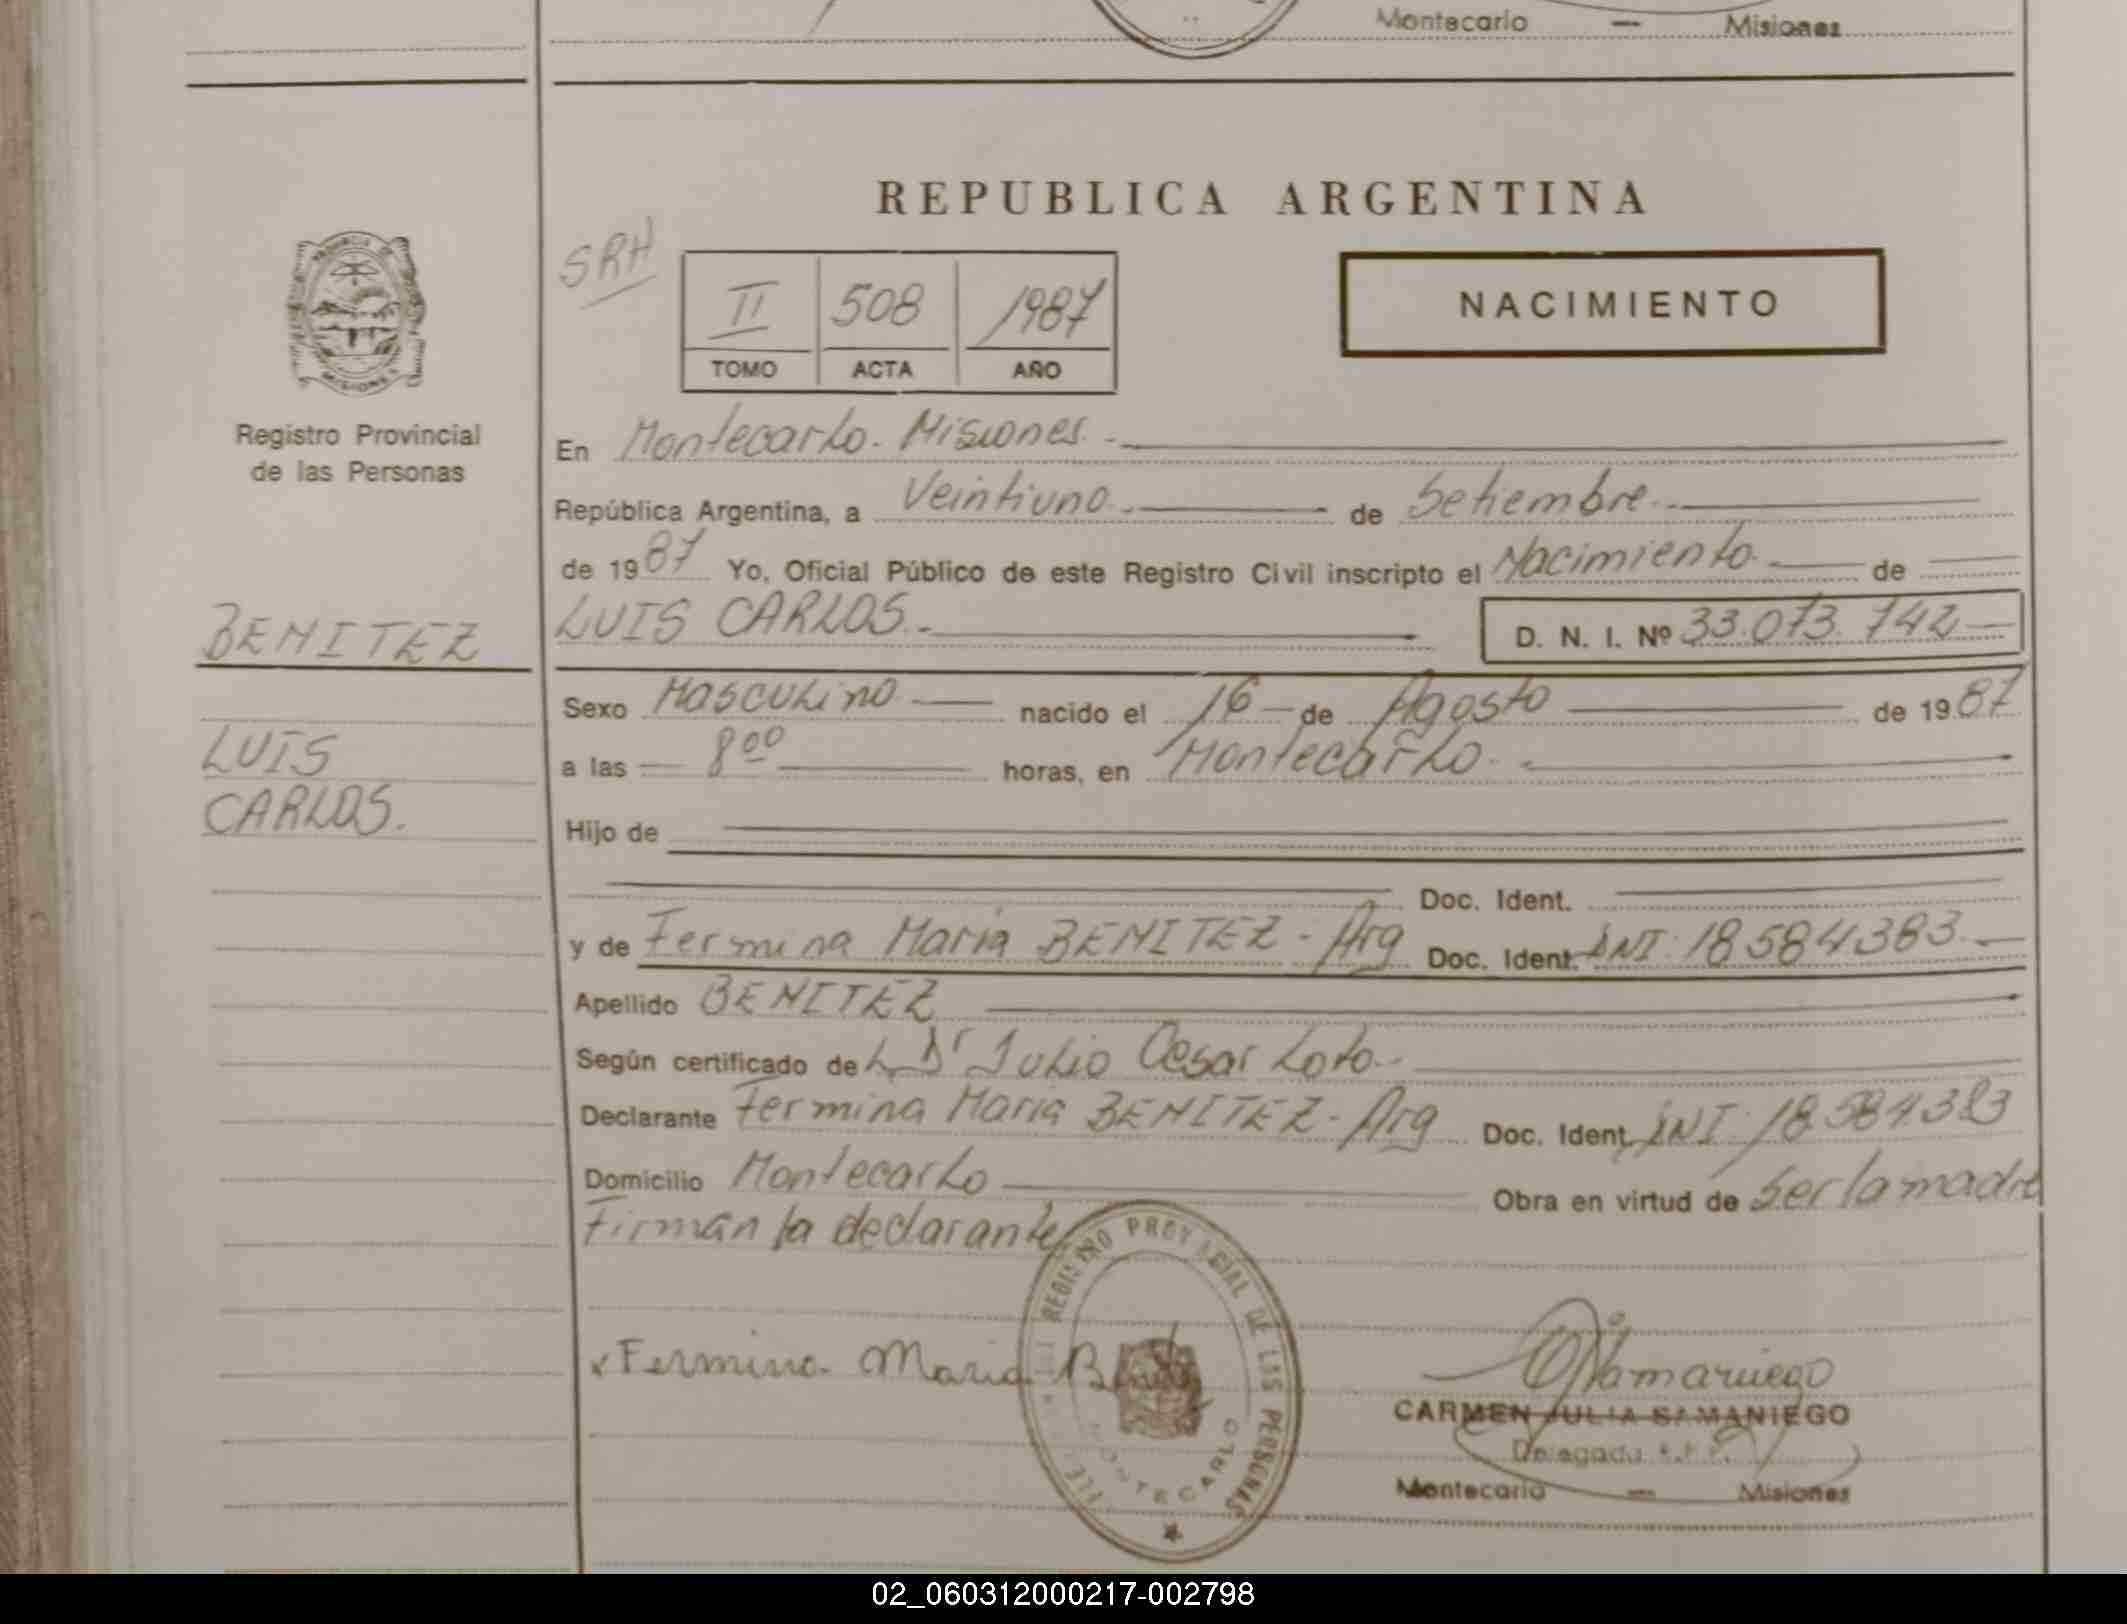 Montecarlo — Misiones
REPUBLICA ARGENTINA
SRH
II 508 1987
TOMO ACTA AÑO
NACIMIENTO
PROVINCIA DE MISIONES
Registro Provincial
de las Personas
En Montecarlo. Misiones.
República Argentina, a Veintiuno de Setiembre
de 1987 Yo, Oficial Público de este Registro Civil inscripto el Nacimiento de
BENITEZ
LUIS CARLOS. D. N. I. Nº 33.073.742
Sexo Masculino nacido el 16 de Agosto de 1987
LUIS
a las 8⁰⁰ horas, en Montecarlo.
CARLOS.
Hijo de
Doc. Ident.
y de Fermina Maria BENITEZ - Arg Doc. Ident. DNI: 18584383.
Apellido BENITEZ
Según certificado de Dr Julio Cesar Loto.
Declarante Fermina Maria BENITEZ - Arg Doc. Ident. DNI: 18.584.383
Domicilio Montecarlo Obra en virtud de Ser la madre
Firman la declarante
REGISTRO PROVINCIAL DE LAS PERSONAS
MONTECARLO
x Fermina Maria
CARMEN JULIA SAMANIEGO
Delegada R.P.P.
Montecarlo — Misiones
02_060312000217-002798